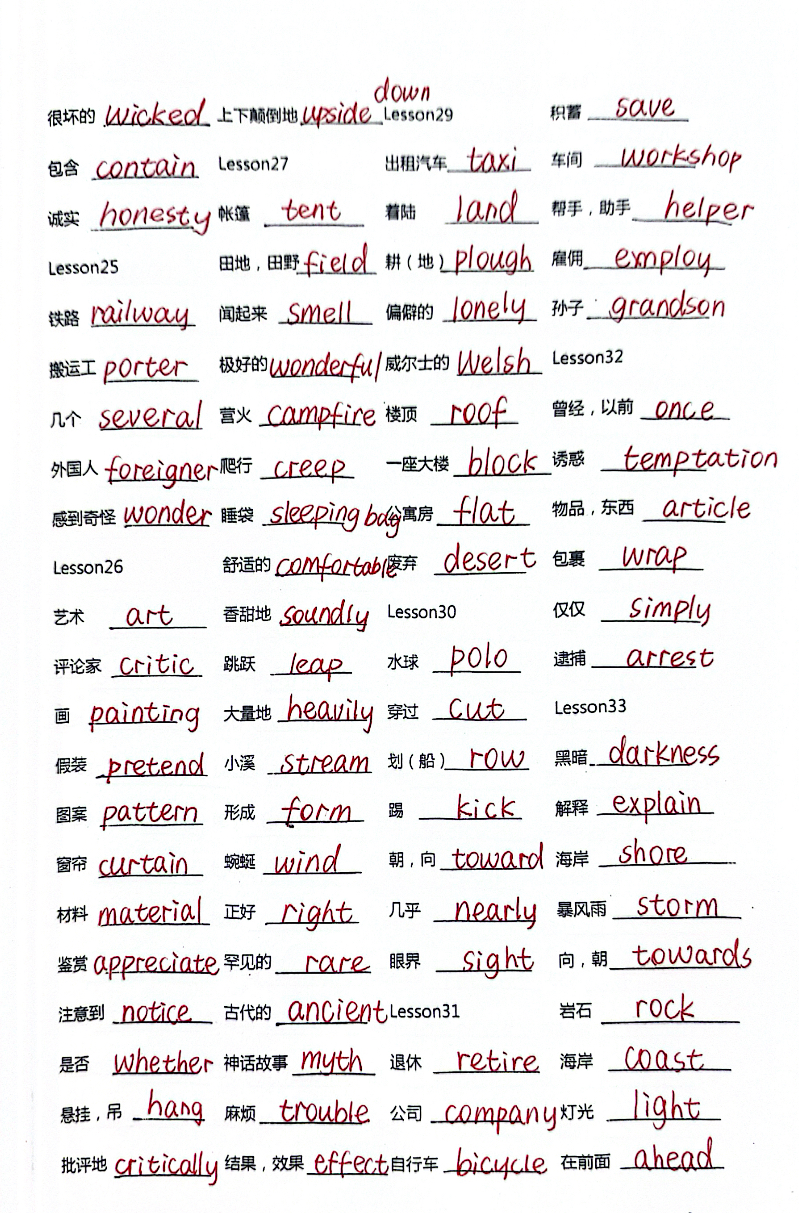 很坏的 wicked
包含 contain
诚实 honesty
Lesson25
铁路 railway
搬运工 porter
几个 several
外国人 foreigner
感到奇怪 wonder
Lesson26
艺术 art
评论家 critic
画 painting
假装 pretend
图案 pattern
窗帘 curtain
材料 material
鉴赏 appreciate
注意到 notice
是否 whether
悬挂，吊 hang
批评地 critically
上下颠倒地 upside down
Lesson27
帐篷 tent
田地，田野 field
闻起来 smell
极好的 wonderful
营火 campfire
爬行 creep
睡袋 sleeping bag
舒适的 comfortable
香甜地 soundly
跳跃 leap
大量地 heavily
小溪 stream
形成 form
蜿蜒 wind
正好 right
罕见的 rare
古代的 ancient
神话故事 myth
麻烦 trouble
结果，效果 effect
Lesson29
出租汽车 taxi
着陆 land
耕（地） plough
偏僻的 lonely
威尔士的 Welsh
楼顶 roof
一座大楼 block
公寓房 flat
废弃 desert
Lesson30
水球 polo
穿过 cut
划（船） row
踢 kick
朝，向 toward
几乎 nearly
眼界 sight
Lesson31
退休 retire
公司 company
自行车 bicycle
积蓄 save
车间 workshop
帮手，助手 helper
雇佣 employ
孙子 grandson
Lesson32
曾经，以前 once
诱惑 temptation
物品，东西 article
包裹 wrap
仅仅 simply
逮捕 arrest
Lesson33
黑暗 darkness
解释 explain
海岸 shore
暴风雨 storm
向，朝 towards
岩石 rock
海岸 coast
灯光 light
在前面 ahead